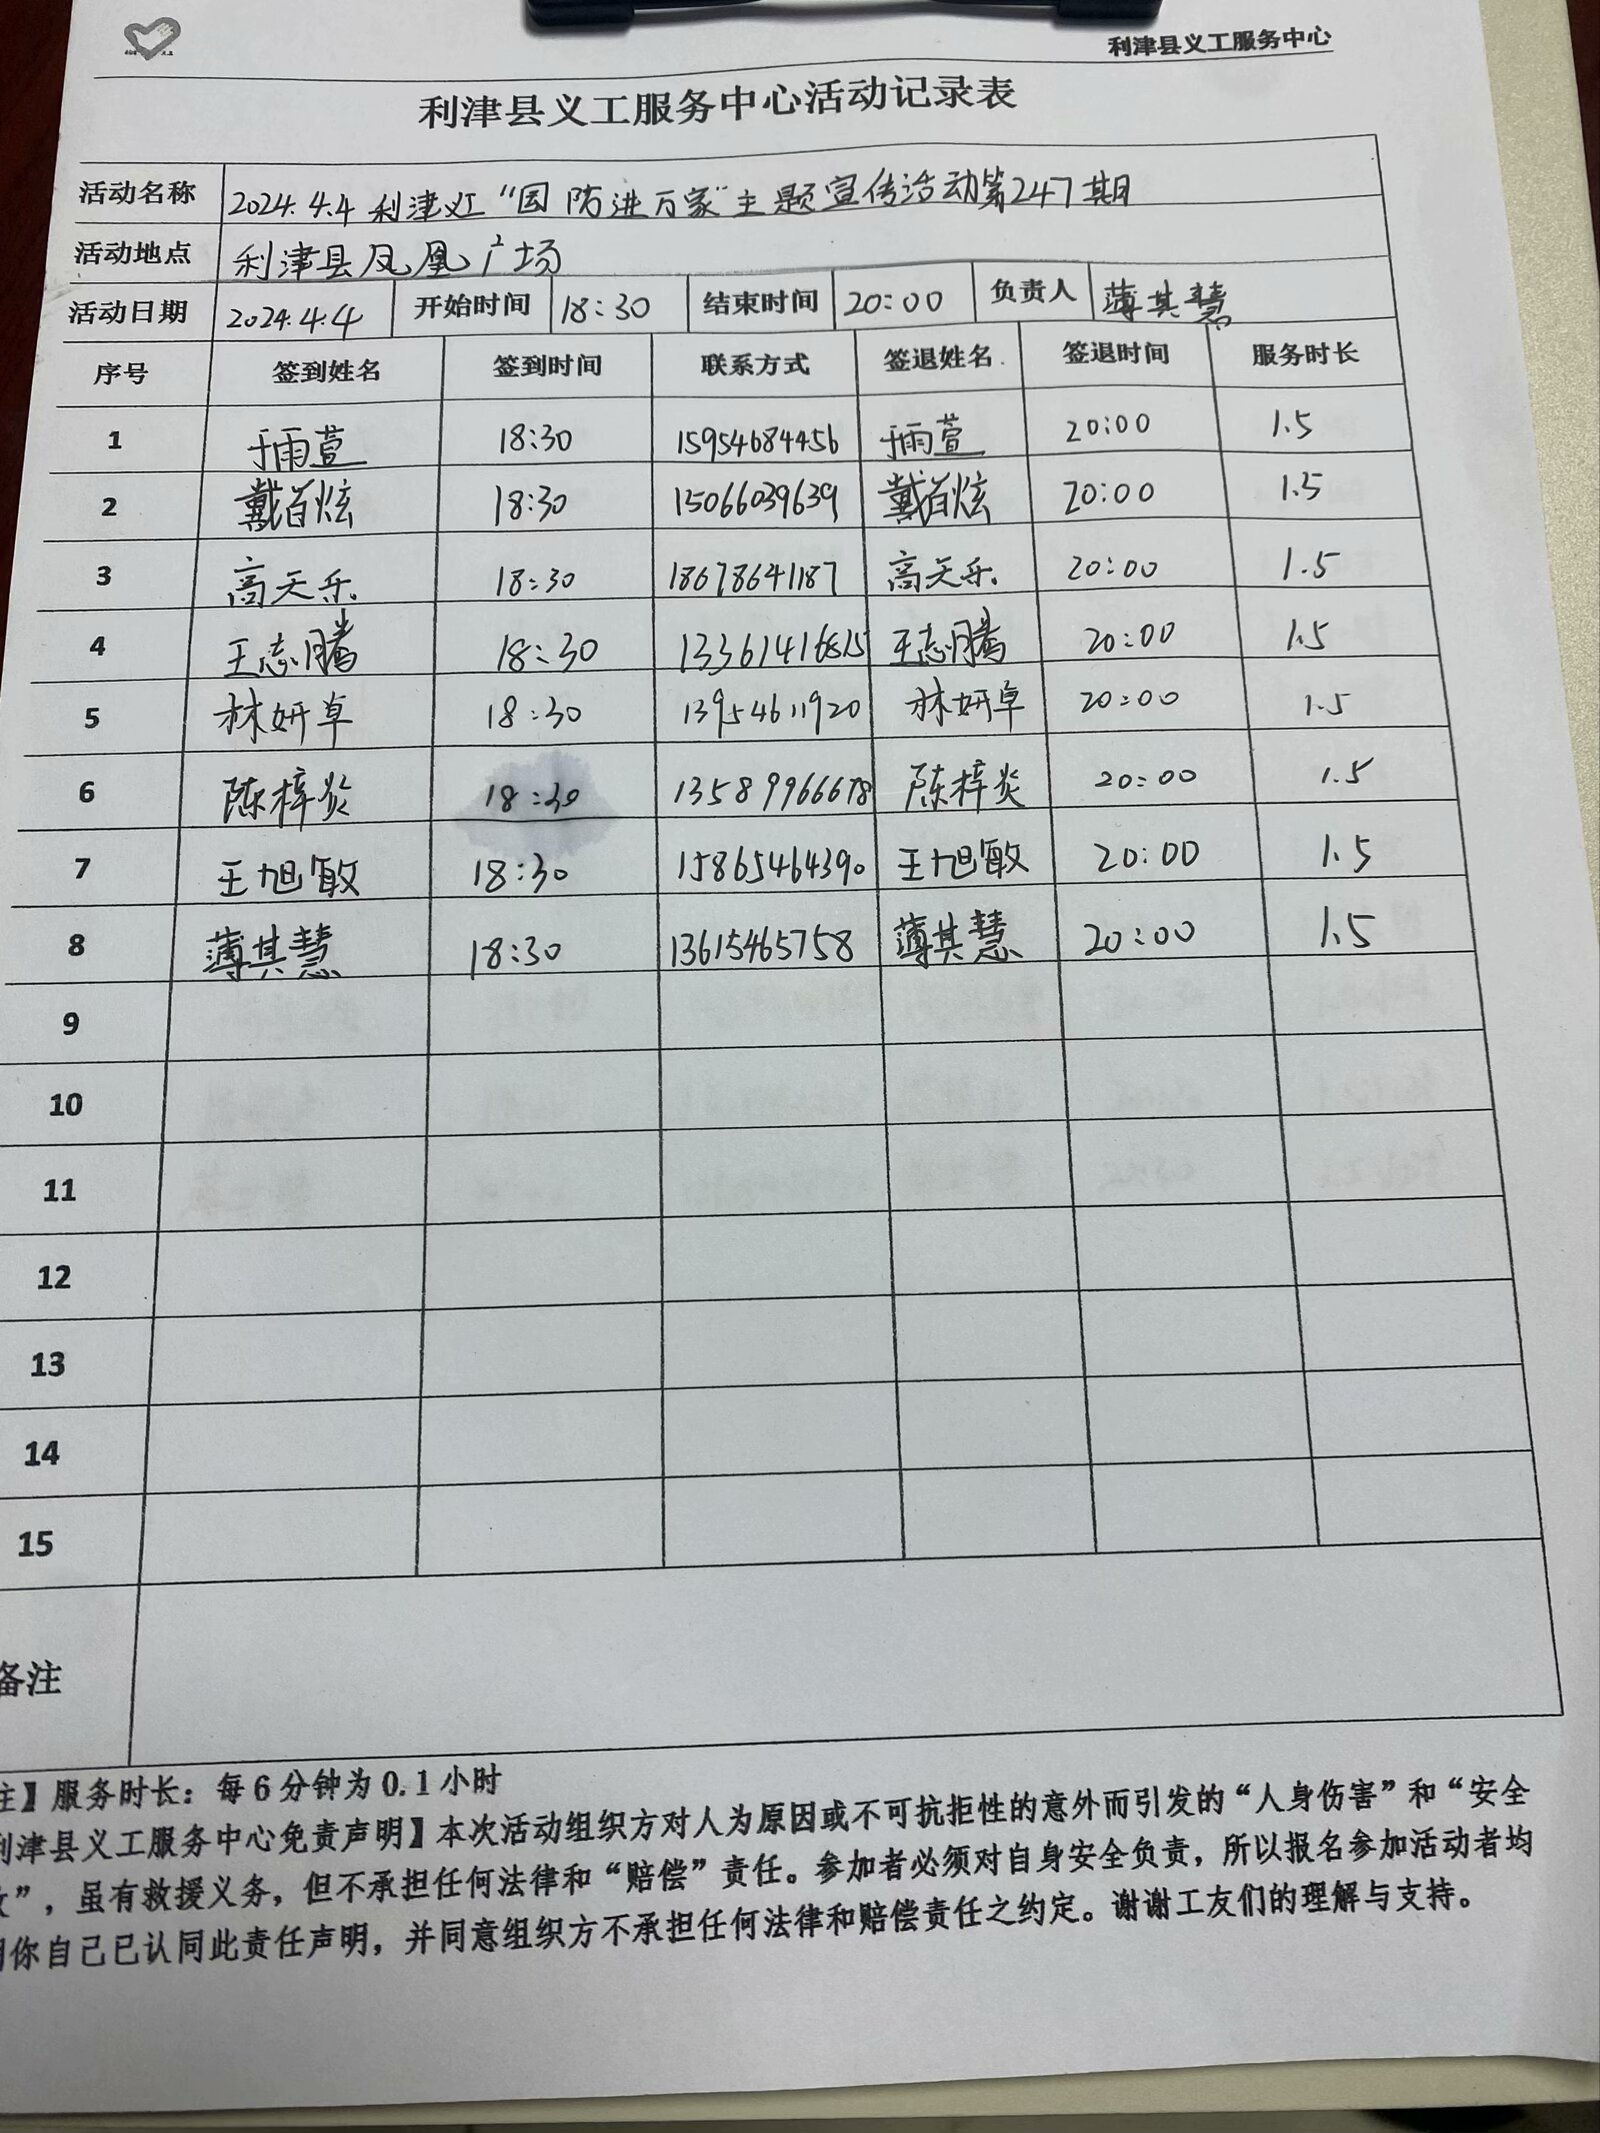 利津县义工服务中心
利津县义工服务中心活动记录表
活动名称 2024.4.4 利津义工“国防进万家”主题宣传活动第247期
活动地点 利津县凤凰广场
活动日期 2024.4.4 开始时间 18:30 结束时间 20:00 负责人 薄其慧
序号 签到姓名 签到时间 联系方式 签退姓名 签退时间 服务时长
1 于雨萱 18:30 15954684456 于雨萱 20:00 1.5
2 戴百炫 18:30 15066039639 戴百炫 20:00 1.5
3 高天乐 18:30 18678641187 高天乐 20:00 1.5
4 王志腾 18:30 王志腾 20:00 1.5
5 林妍卓 18:30 13954611920 林妍卓 20:00 1.5
6 陈梓炎 18:30 13589966678 陈梓炎 20:00 1.5
7 王旭敏 18:30 15865464390 王旭敏 20:00 1.5
8 薄其慧 18:30 13615465758 薄其慧 20:00 1.5
9
10
11
12
13
14
15
备注
注】服务时长：每6分钟为0.1小时
利津县义工服务中心免责声明】本次活动组织方对人为原因或不可抗拒性的意外而引发的“人身伤害”和“安全
”，虽有救援义务，但不承担任何法律和“赔偿”责任。参加者必须对自身安全负责，所以报名参加活动者均
明你自己已认同此责任声明，并同意组织方不承担任何法律和赔偿责任之约定。谢谢工友们的理解与支持。